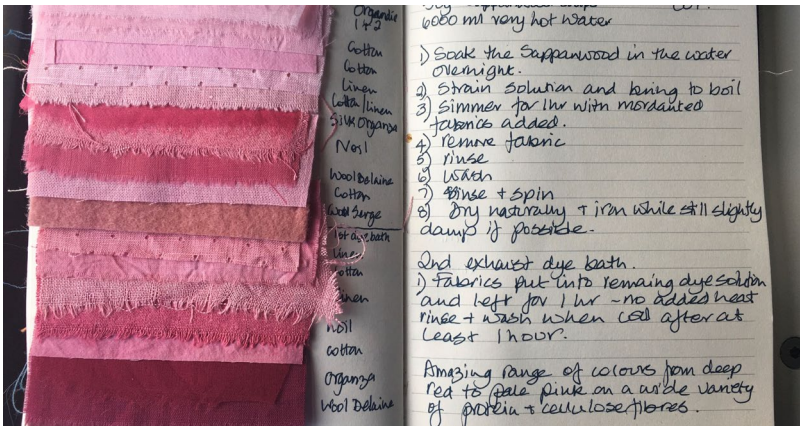 Organdie
1 + 2
Cotton
Cotton
Linen
Cotton/linen
Silk Organza
Noil
Wool Delaine
Cotton
Wool Surge
1st dye bath
Linen
Cotton
Linen
Noil
cotton
Organza
Wool Delaine
6000 ml very hot water
1) Soak the Sappanwood in the water
overnight.
2) Strain solution and bring to boil
3) Simmer for 1hr with mordanted
fabrics added.
4) remove fabric
5) rinse
6) wash
7) Rinse + spin
8) Dry naturally + iron while still slightly
damp if possible.
2nd exhaust dye bath.
1) Fabrics put into remaing dye solution
and left for 1 hr - no added heat
rinse + wash when cool after at
least 1 hour.
Amazing range of colours from deep
red to pale pink on a wide variety
of protein + cellulose fibres.